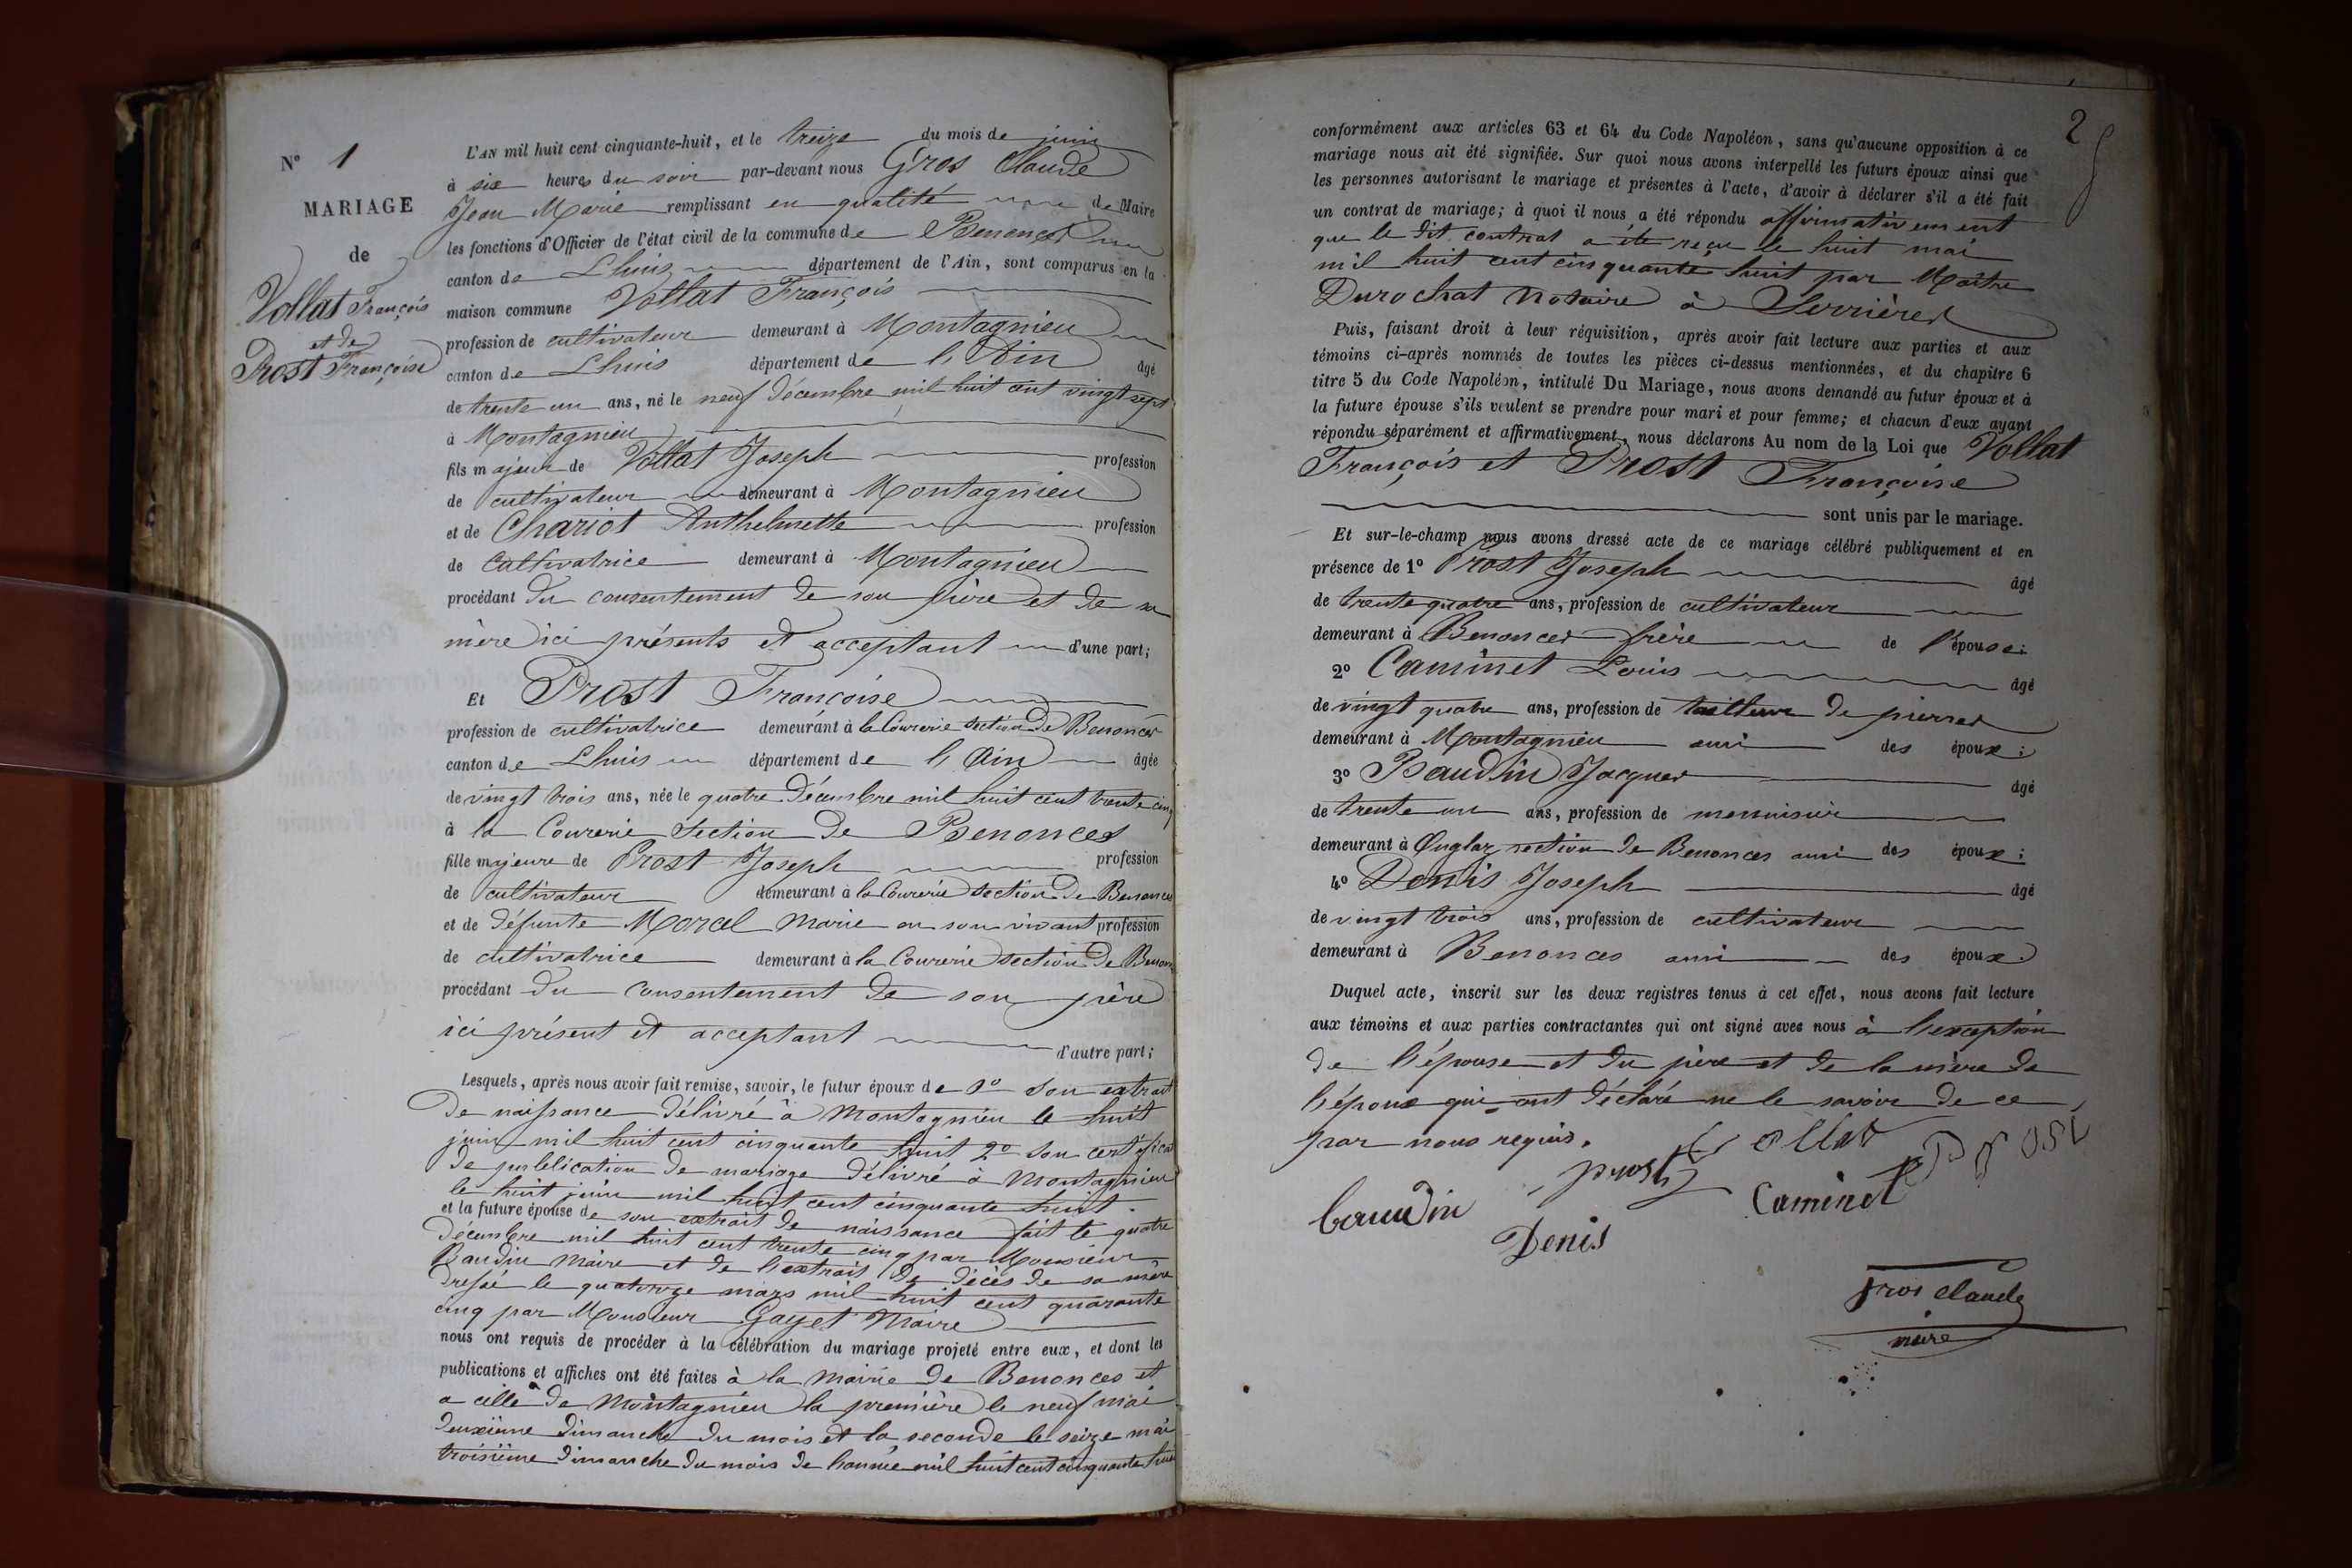 N° 1
MARIAGE
de
Vollat François
et de
Prost Françoise
L'AN mil huit cent cinquante-huit, et le treize du mois de juin
à six heures du soir par-devant nous Gros Claude
Jean Marie remplissant en qualité de Maire
les fonctions d'Officier de l'état civil de la commune de Benonces
canton de Lhuis département de l'Ain, sont comparus en la
maison commune Vollat François
profession de cultivateur demeurant à Montagnieu
canton de Lhuis département de l'Ain âgé
de trente un ans, né le neuf décembre mil huit cent vingt sept
à Montagnieu
fils majeur de Vollat Joseph profession
de cultivateur demeurant à Montagnieu
et de Chariot Anthelmette profession
de Cultivatrice demeurant à Montagnieu
procédant du consentement de son père et de sa
mère ici présents et acceptant d'une part;
Et Prost Françoise
profession de cultivatrice demeurant à la Courerie section de Benonces
canton de Lhuis département de l'Ain âgée
de vingt trois ans, née le quatre décembre mil huit cent trente cinq
à la Courerie section de Benonces
fille majeure de Prost Joseph profession
de cultivateur demeurant à la Courerie section de Benonces
et de défunte Morcel Marie en son vivant profession
de cultivatrice demeurant à la Courerie section de Benon
procédant du consentement de son père
ici présent et acceptant d'autre part;
Lesquels, après nous avoir fait remise, savoir, le futur époux de 1° son extrait
de naissance délivré à Montagnieu le huit
juin mil huit cent cinquante huit 2° son certificat
de publication de mariage délivré à Montagnieu
le huit juin mil huit cent cinquante huit.
et la future épouse de son extrait de naissance fait le quatre
décembre mil huit cent trente cinq par Monsieur
Baudin Maire et de l'extrait de décès de sa mère
dressé le quatorze mars mil huit cent quarante
cinq par Monsieur Gayet Maire
nous ont requis de procéder à la célébration du mariage projeté entre eux, et dont les
publications et affiches ont été faites à la Mairie de Benonces et
a celle de Montagnieu la première le neuf mai
deuxième dimanche du mois et la seconde le seize mai
troisième dimanche du mois de l'année mil huit cent cinquante huit
2
conformément aux articles 63 et 64 du Code Napoléon, sans qu'aucune opposition à ce
mariage nous ait été signifiée. Sur quoi nous avons interpellé les futurs époux ainsi que
les personnes autorisant le mariage et présentes à l'acte, d'avoir à déclarer s'il a été fait
un contrat de mariage; à quoi il nous a été répondu affirmativement
que le dit contrat a été reçu le huit mai
mil huit cent cinquante huit par Maître
Durochat Notaire à Serrières
Puis, faisant droit à leur réquisition, après avoir fait lecture aux parties et aux
témoins ci-après nommés de toutes les pièces ci-dessus mentionnées, et du chapitre 6
titre 5 du Code Napoléon, intitulé Du Mariage, nous avons demandé au futur époux et à
la future épouse s'ils veulent se prendre pour mari et pour femme; et chacun d'eux ayant
répondu séparément et affirmativement, nous déclarons Au nom de la Loi que Vollat
François et Prost Françoise
sont unis par le mariage.
Et sur-le-champ nous avons dressé acte de ce mariage célébré publiquement et en
présence de 1° Prost Joseph âgé
de trente quatre ans, profession de cultivateur
demeurant à Benonces frère de l'épouse;
2° Caminet Louis âgé
de vingt quatre ans, profession de tailleur de pierres
demeurant à Montagnieu ami des époux;
3° Baudin Jacques âgé
de trente un ans, profession de menuisier
demeurant à Onglaz section de Benonces ami des époux;
4° Denis Joseph âgé
de vingt trois ans, profession de cultivateur
demeurant à Benonces ami des époux.
Duquel acte, inscrit sur les deux registres tenus à cet effet, nous avons fait lecture
aux témoins et aux parties contractantes qui ont signé avec nous à l'exception
de l'épouse et du père et de la mère de
l'époux qui ont déclaré ne le savoir de ce
par nous requis.
Vollat
prost
Prost
baudin
Caminet
Denis
gros claude
maire